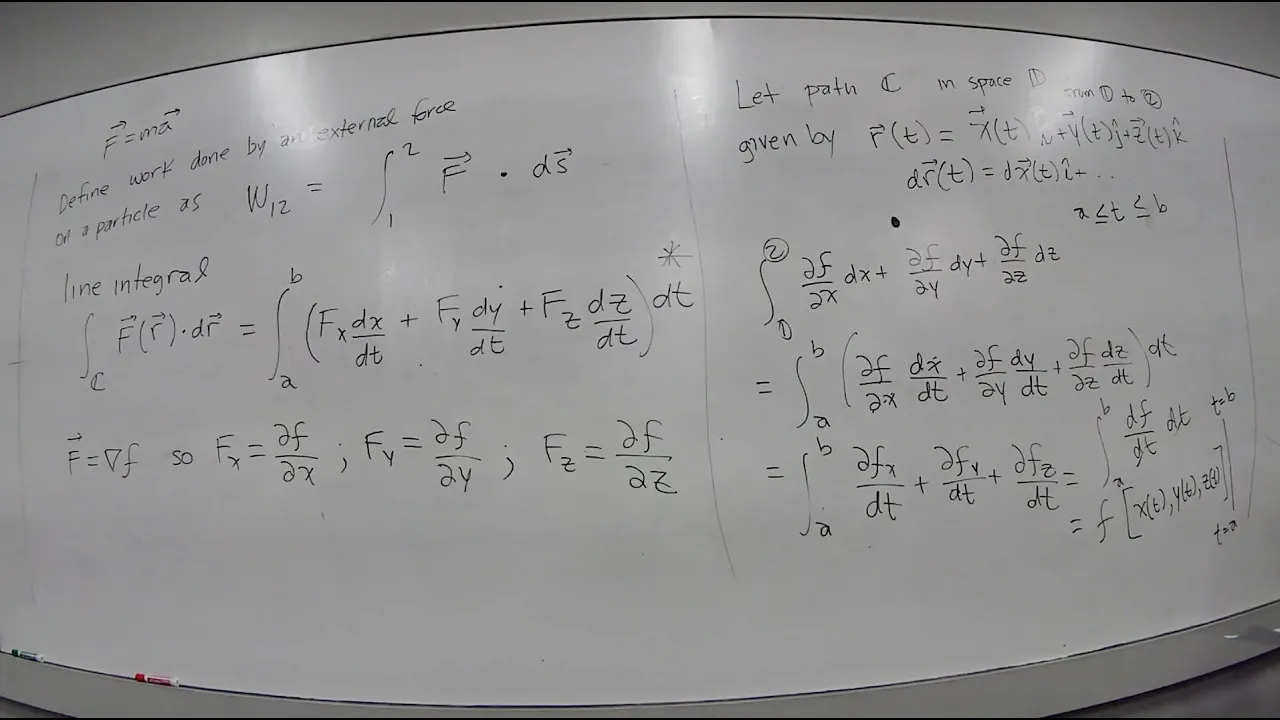 F⃗ = ma⃗
Define work done by an external force
on a particle as W₁₂ = ∫₁² F⃗ · ds⃗
line integral
∫_ℂ F⃗(r⃗)·dr⃗ = ∫ₐᵇ (Fₓ dx/dt + F_y dy/dt + F_z dz/dt) dt *
F⃗ = ∇f so Fₓ = ∂f/∂x ; F_y = ∂f/∂y ; F_z = ∂f/∂z
Let path ℂ in space from ① to ②
given by r⃗(t) = x⃗(t) î + y⃗(t) ĵ + z⃗(t) k̂
dr⃗(t) = dx⃗(t) î + ...
a ≤ t ≤ b
∫_①^② ∂f/∂x dx + ∂f/∂y dy + ∂f/∂z dz
= ∫ₐᵇ (∂f/∂x dx/dt + ∂f/∂y dy/dt + ∂f/∂z dz/dt) dt
= ∫ₐᵇ ∂fₓ/dt + ∂f_y/dt + ∂f_z/dt = ∫ₐᵇ df/dt dt
= f [x(t), y(t), z(t)] |_{t=a}^{t=b}